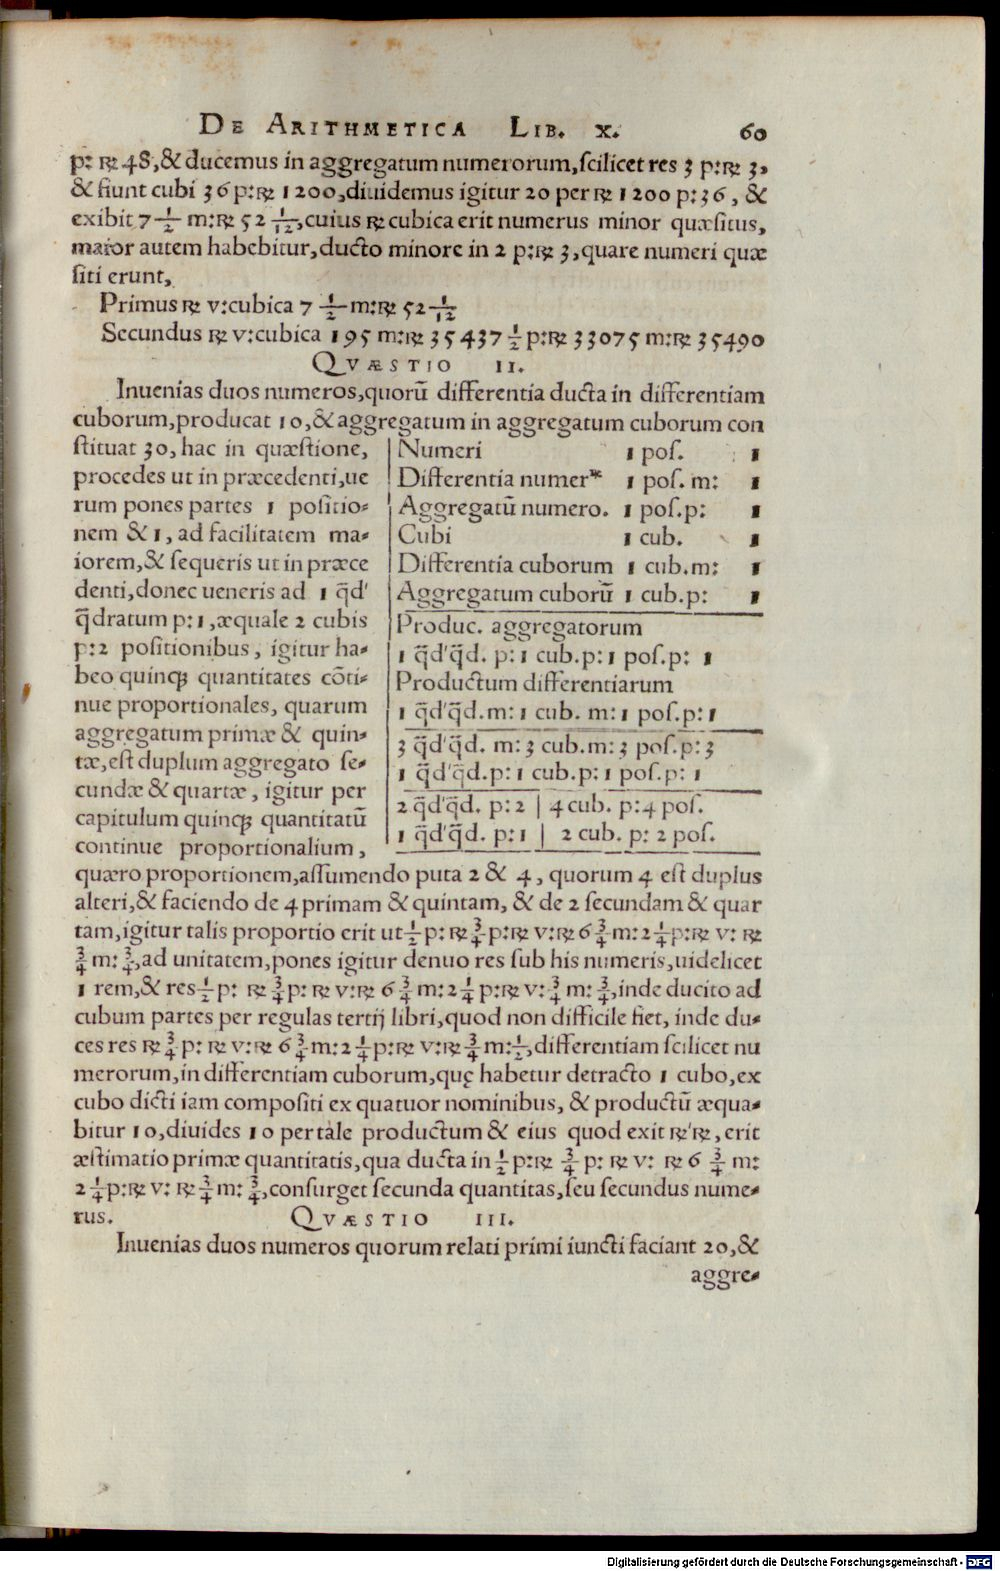 DE ARITHMETICA LIB. X. 60
p: ℞ 48, & ducemus in aggregatum numerorum, scilicet res 3 p:℞ 3,
& fiunt cubi 36 p:℞ 1200, diuidemus igitur 20 per ℞ 1200 p:36, &
exibit 7 1/2 m:℞ 52 1/12, cuius ℞ cubica erit numerus minor quæsitus,
maior autem habebitur, ducto minore in 2 p:℞ 3, quare numeri quæ
siti erunt,
Primus ℞ v:cubica 7 1/2 m:℞ 52 1/12
Secundus ℞ v:cubica 195 m:℞ 35437 1/2 p:℞ 33075 m:℞ 35490
QVÆSTIO II.
Inuenias duos numeros, quorũ differentia ducta in differentiam
cuborum, producat 10, & aggregatum in aggregatum cuborum con
stituat 30, hac in quæstione,
procedes ut in præcedenti, ue
rum pones partes 1 positio-
nem & 1, ad facilitatem ma-
iorem, & sequeris ut in præce
denti, donec ueneris ad 1 q̃d'
q̃dratum p:1, æquale 2 cubis
p:2 positionibus, igitur ha-
beo quinq; quantitates cõti-
nue proportionales, quarum
aggregatum primæ & quin-
tæ, est duplum aggregato se-
cundæ & quartæ, igitur per
capitulum quinq; quantitatũ
continue proportionalium,
Numeri 1 pos. 1
Differentia numer* 1 pos. m: 1
Aggregatũ numero. 1 pos.p: 1
Cubi 1 cub. 1
Differentia cuborum 1 cub.m: 1
Aggregatum cuborũ 1 cub.p: 1
Produc. aggregatorum
1 q̃d'q̃d. p:1 cub.p:1 pos.p: 1
Productum differentiarum
1 q̃d'q̃d.m:1 cub. m:1 pos.p:1
3 q̃d'q̃d. m:3 cub.m:3 pos.p:3
1 q̃d'q̃d.p:1 cub.p:1 pos.p: 1
2 q̃d'q̃d. p:2 | 4 cub. p:4 pos.
1 q̃d'q̃d. p:1 | 2 cub. p: 2 pos.
quæro proportionem, assumendo puta 2 & 4, quorum 4 est duplus
alteri, & faciendo de 4 primam & quintam, & de 2 secundam & quar
tam, igitur talis proportio erit ut 1/2 p:℞ 3/4 p:℞ v:℞ 6 3/4 m:2 1/4 p:℞ v: ℞
3/4 m: 3/4, ad unitatem, pones igitur denuo res sub his numeris, uidelicet
1 rem, & res 1/2 p: ℞ 3/4 p: ℞ v:℞ 6 3/4 m:2 1/4 p:℞ v: 3/4 m: 3/4, inde ducito ad
cubum partes per regulas tertij libri, quod non difficile fiet, inde du-
ces res ℞ 3/4 p: ℞ v:℞ 6 3/4 m:2 1/4 p:℞ v:℞ 3/4 m:1/2, differentiam scilicet nu
merorum, in differentiam cuborum, quę habetur detracto 1 cubo, ex
cubo dicti iam compositi ex quatuor nominibus, & productũ æqua-
bitur 10, diuides 10 per tale productum & eius quod exit ℞'℞, erit
æstimatio primæ quantitatis, qua ducta in 1/2 p:℞ 3/4 p: ℞ v: ℞ 6 3/4 m:
2 1/4 p:℞ v: ℞ 3/4 m: 3/4, consurget secunda quantitas, seu secundus nume-
rus. QVÆSTIO III.
Inuenias duos numeros quorum relati primi iuncti faciant 20, &
aggre-
Digitalisierung gefördert durch die Deutsche Forschungsgemeinschaft - DFG